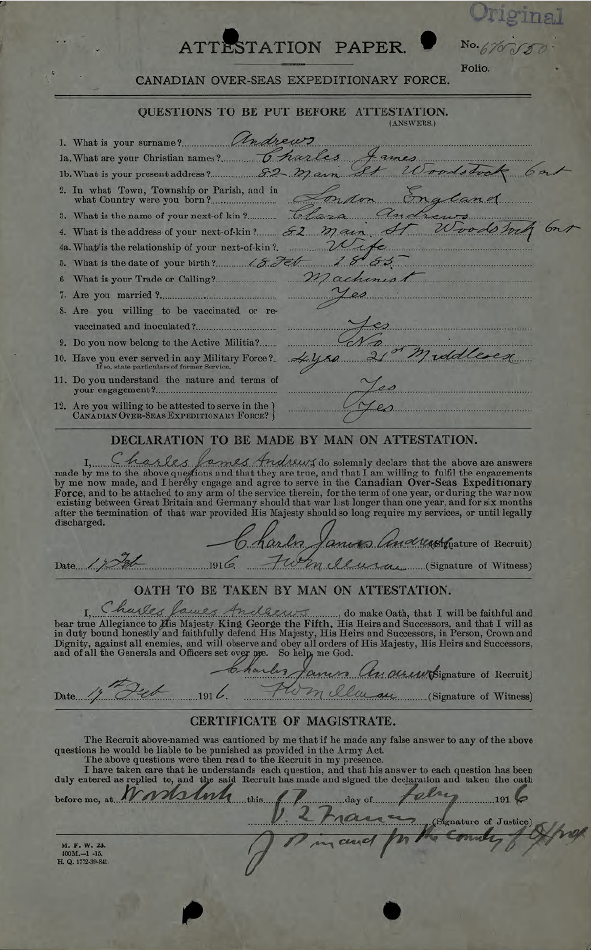 Original
ATTESTATION PAPER.
No.
Folio.
CANADIAN OVER-SEAS EXPEDITIONARY FORCE.
QUESTIONS TO BE PUT BEFORE ATTESTATION.
(ANSWERS.)
1. What is your surname? Andrews
1a. What are your Christian names? Charles James
1b. What is your present address? 82 Main St Woodstock Ont
2. In what Town, Township or Parish, and in
what Country were you born? London England
3. What is the name of your next-of kin? Clara Andrews
4. What is the address of your next-of-kin? 82 Main St Woodstock Ont
4a. What is the relationship of your next-of-kin? Wife
5. What is the date of your birth? 18 Feb 1885
6. What is your Trade or Calling? Machinist
7. Are you married? Yes
8. Are you willing to be vaccinated or re-
vaccinated and inoculated? Yes
9. Do you now belong to the Active Militia? No
10. Have you ever served in any Military Force? 4 yrs Middlesex
If so, state particulars of former Service.
11. Do you understand the nature and terms of
your engagement? Yes
12. Are you willing to be attested to serve in the
CANADIAN OVER-SEAS EXPEDITIONARY FORCE? Yes
DECLARATION TO BE MADE BY MAN ON ATTESTATION.
I, Charles James Andrews do solemnly declare that the above are answers
made by me to the above questions and that they are true, and that I am willing to fulfil the engagements
by me now made, and I hereby engage and agree to serve in the Canadian Over-Seas Expeditionary
Force, and to be attached to any arm of the service therein, for the term of one year, or during the war now
existing between Great Britain and Germany should that war last longer than one year, and for six months
after the termination of that war provided His Majesty should so long require my services, or until legally
discharged.
Charles James Andrews (Signature of Recruit)
Date 17 Feb 1916 (Signature of Witness)
OATH TO BE TAKEN BY MAN ON ATTESTATION.
I, Charles James Andrews do make Oath, that I will be faithful and
bear true Allegiance to His Majesty King George the Fifth, His Heirs and Successors, and that I will as
in duty bound honestly and faithfully defend His Majesty, His Heirs and Successors, in Person, Crown and
Dignity, against all enemies, and will observe and obey all orders of His Majesty, His Heirs and Successors,
and of all the Generals and Officers set over me. So help me God.
Charles James Andrews (Signature of Recruit)
Date 17th Feb 1916 (Signature of Witness)
CERTIFICATE OF MAGISTRATE.
The Recruit above-named was cautioned by me that if he made any false answer to any of the above
questions he would be liable to be punished as provided in the Army Act.
The above questions were then read to the Recruit in my presence.
I have taken care that he understands each question, and that his answer to each question has been
duly entered as replied to, and the said Recruit has made and signed the declaration and taken the oath
before me, at Woodstock this 17 day of Feby 1916
(Signature of Justice)
J P in and for the County of Oxford
M. F. W. 23.
400M.-1-15.
H. Q. 1772-39-841.